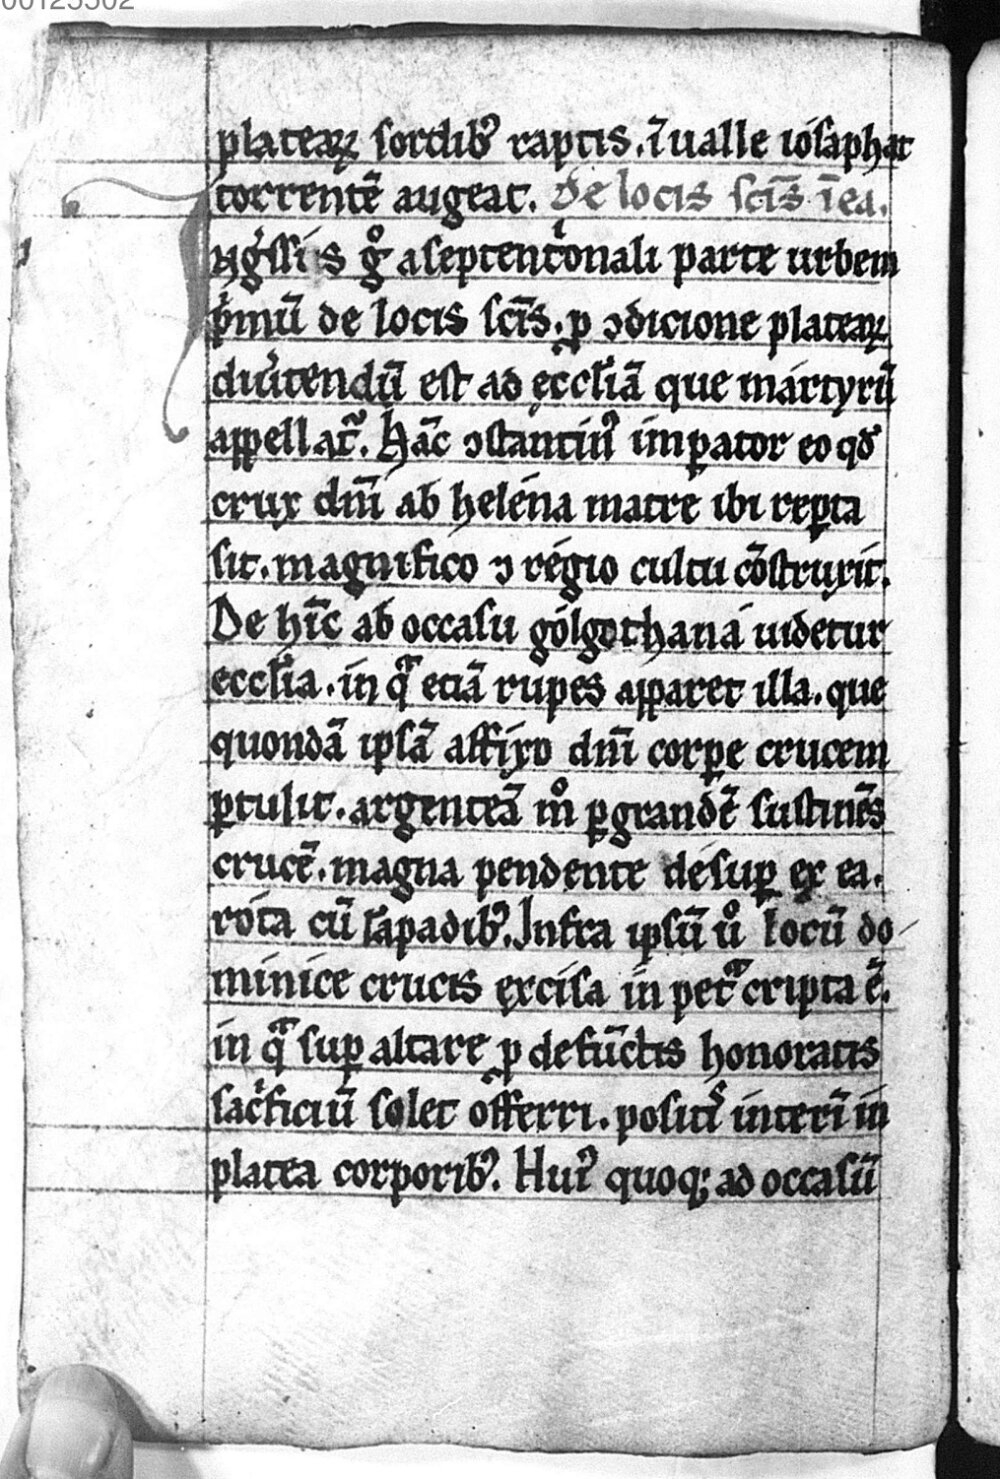 00125502
plateaꝝ sordibꝰ raptis. ī ualle iosaphat
torrentē augeat. De locis scīs ī ea.
Ingͥssis gͦ a septentͥonali parte urbem
pͥmū de locis scīs. ꝓ ↄdicione plateaꝝ
diuͥtendū est ad ecclīā que martyrū
appellat᷑. Hāc ↄstantinꝰ imꝑator eo qđ
crux dnī ab helena matre ibi reꝑta
sit. magnifico ⁊ regio cultu cōstruxit.
De hīc ab occasu golgothana uidetur
ecclīa. in qᷓ eciā rupes apparet illa. que
quondā ipsā affixo dnī corꝑe crucem
ꝑtulit. argenteā mͦ ꝑgrandē sustinēs
crucē. magna pendente desuꝑ ex ea.
rota cū lāpadibꝰ. Infra ipsū uͦ locū do
minice crucis excisa in petᷓ cripta ē.
in qᷓ suꝑ altare ꝓ defūctis honoratis
sacͥficiū solet offerri. positͥs interī in
platea corporibꝰ. Huiꝰ quoqꝫ ad occasū